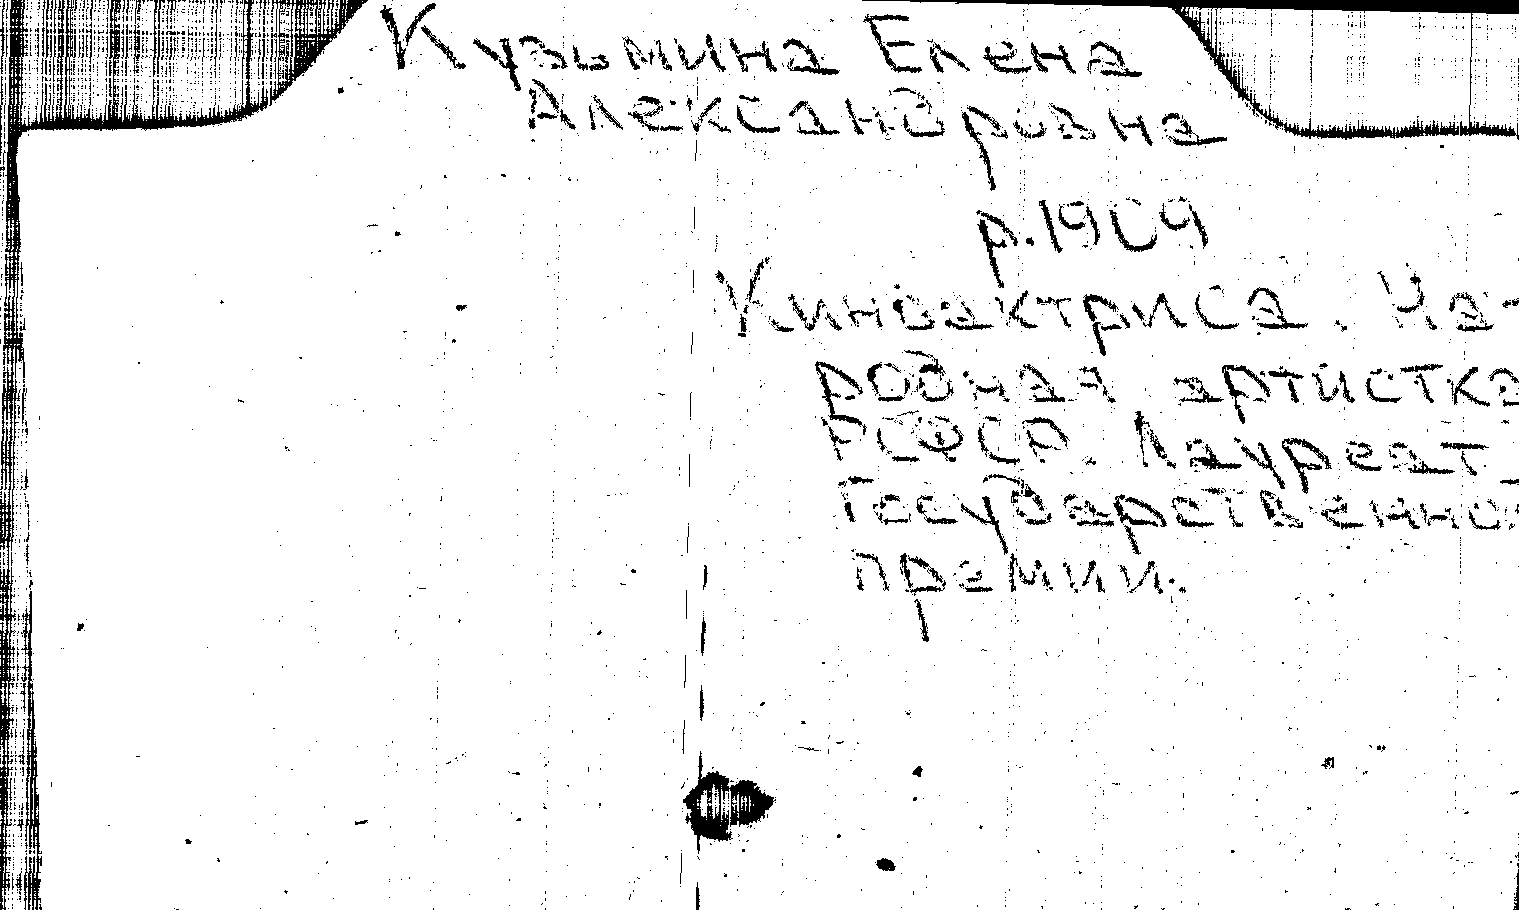 Кузьмина Елена
Александровна
р. 1909
Киноактриса. На-
родная артистка
РСФСР. Лауреат
Государственно
премии.